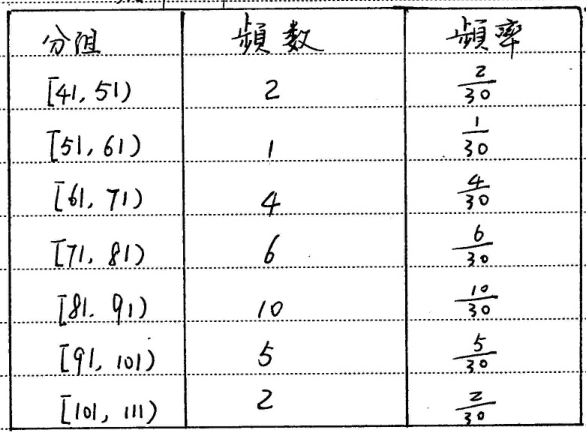 分组 頻数 頻率
[41, 51) 2 2/30
[51, 61) 1 1/30
[61, 71) 4 4/30
[71, 81) 6 6/30
[81, 91) 10 10/30
[91, 101) 5 5/30
[101, 111) 2 2/30